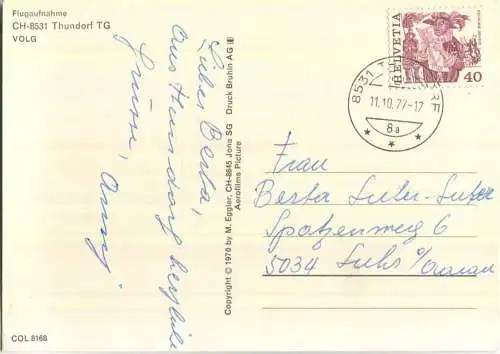 Flugaufnahme
CH-8531 Thundorf TG
VOLG
Lieber Berta,
Aus Thundorf herzliche
Grüsse, Anny
COL 8168
Copyright © 1976 by M. Eggler, CH-8645 Jona SG Druck Bruhin AG
Aerofilms Picture
HELVETIA
40
8531
11.10.77-17
8a
Frau
Berta Suter-Suter
Spatzenweg 6
5034 Suhr